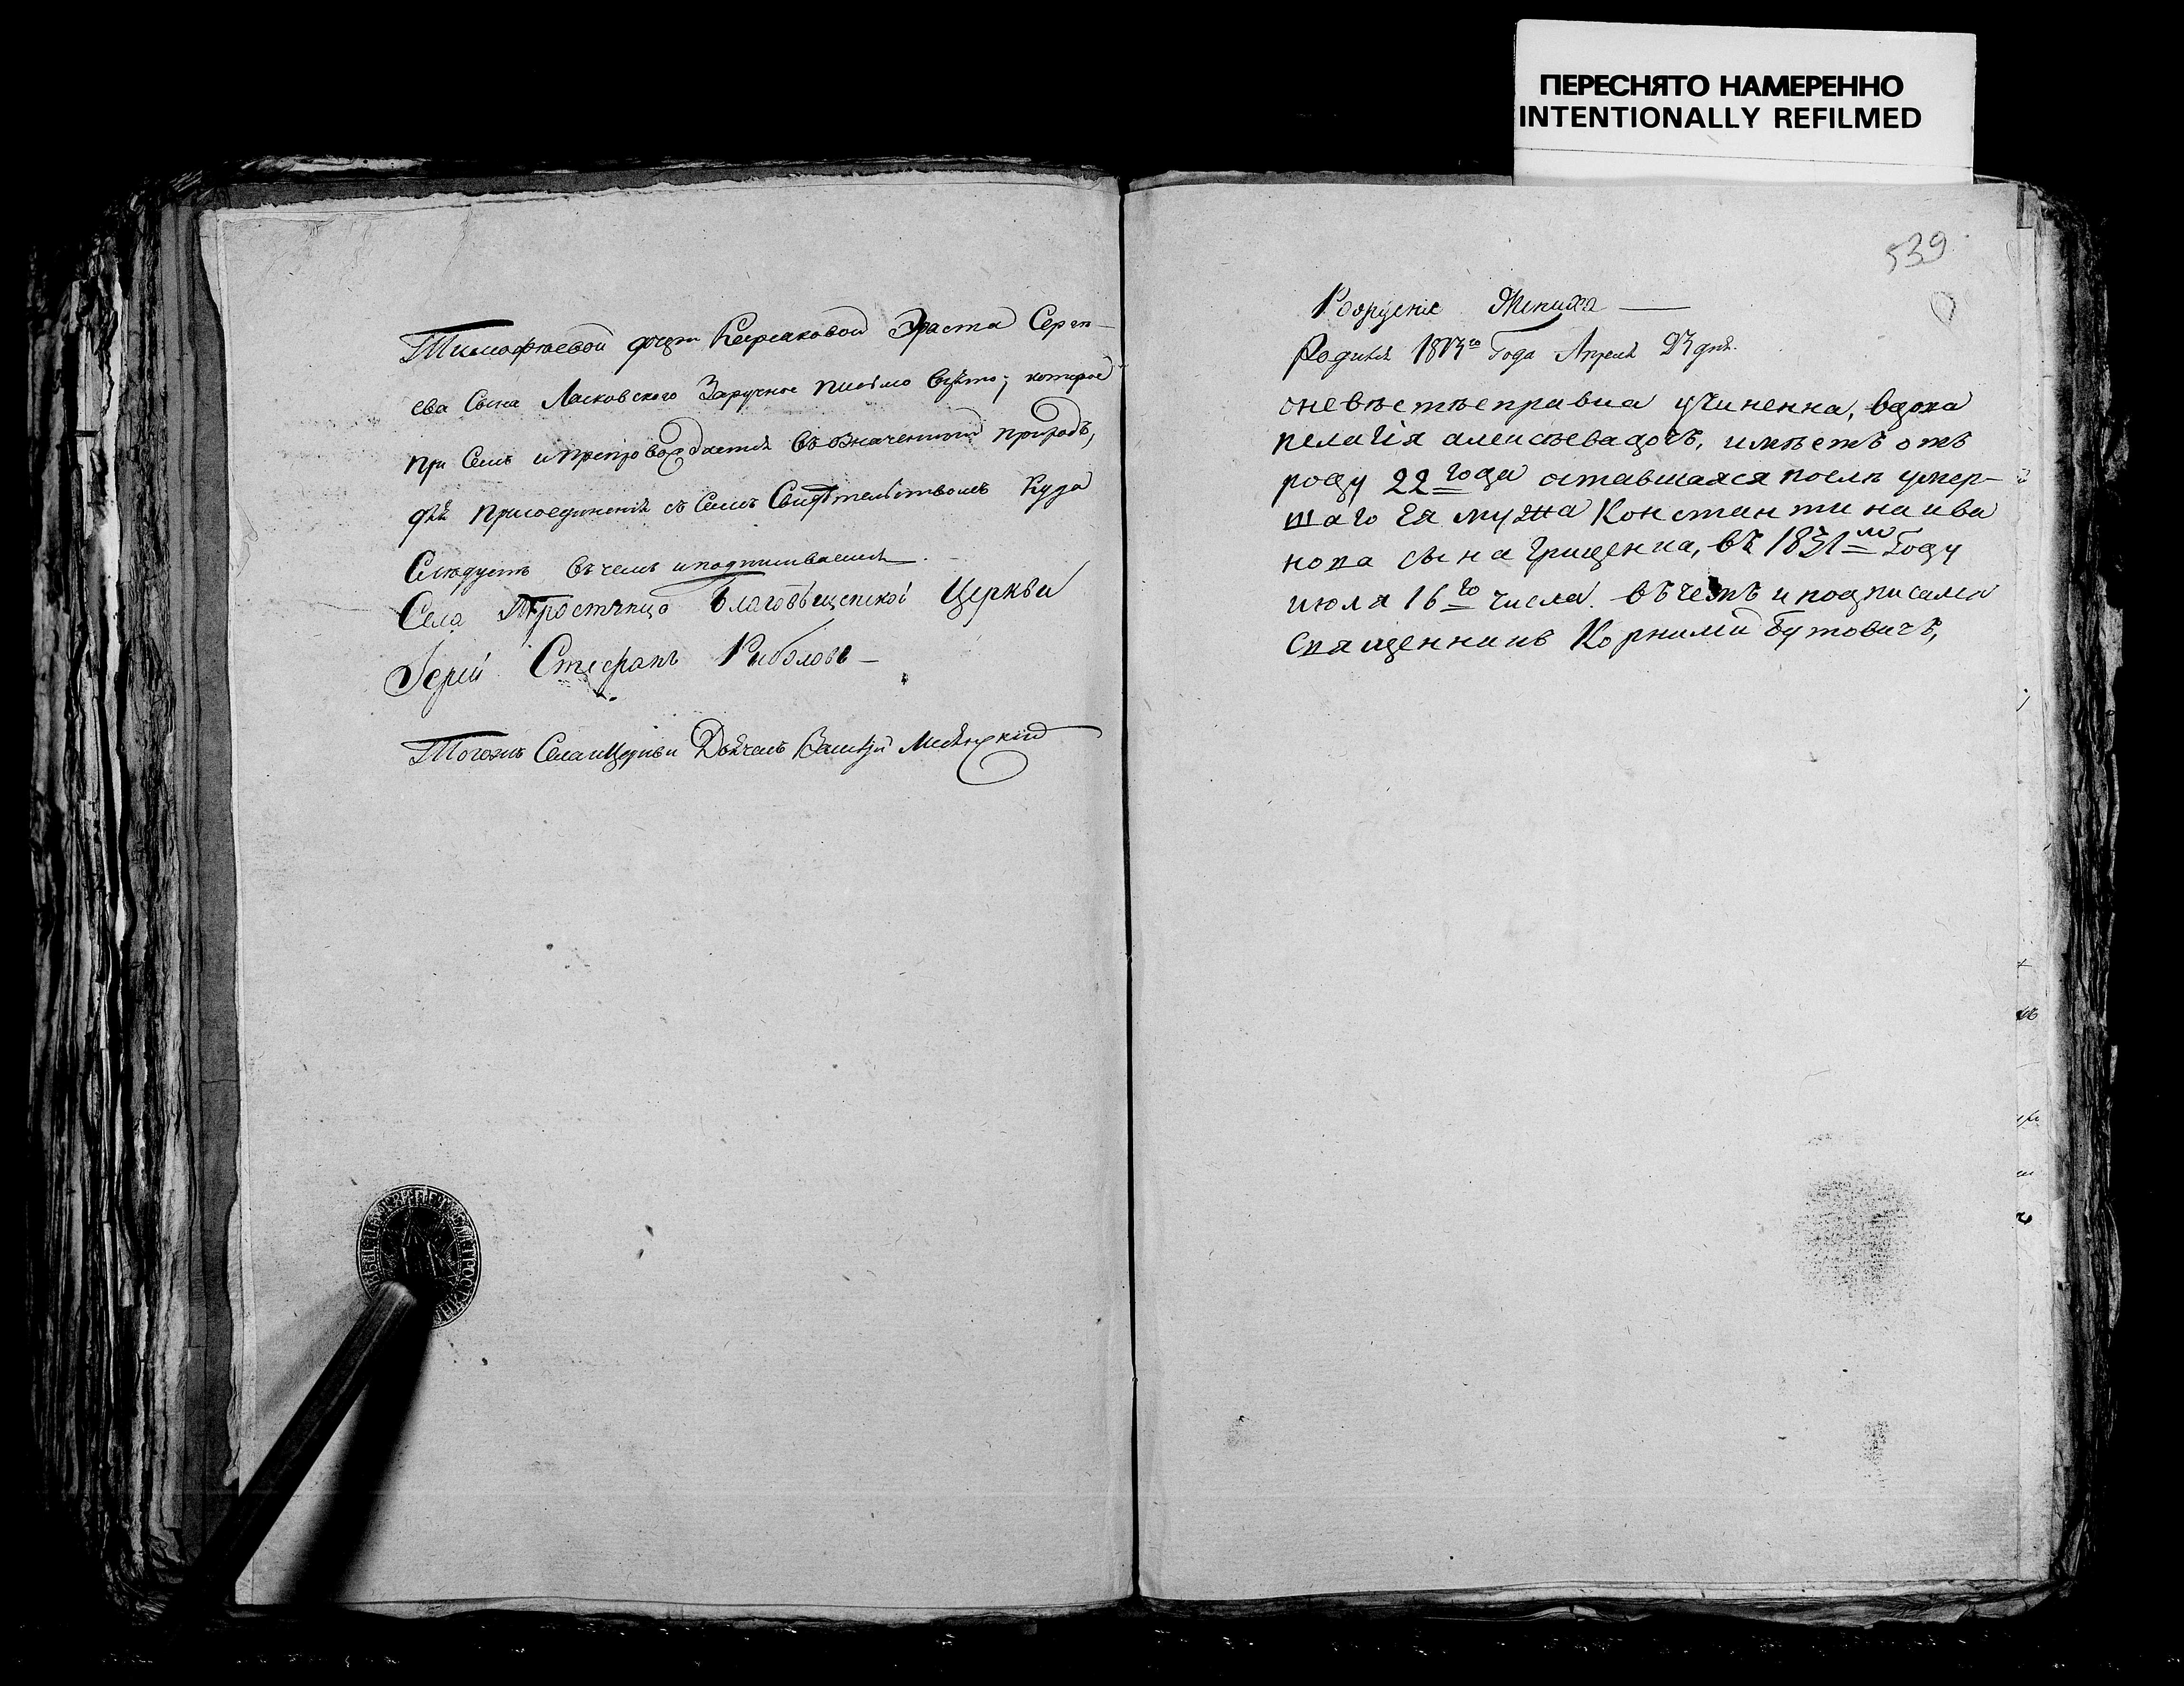 ПЕРЕСНЯТО НАМЕРЕННО
INTENTIONALLY REFILMED
539
Тимофѣевой дочери Корсаковой Эраста Серге-
ева Сына Ласковского Заручное письмо взято; которое
при семъ и препровождается въ означенной приходъ,
для присоединенія съ симъ Свидѣтельствомъ Куда
Слѣдуетъ въ чемъ и подписываемся
Села Тростянца Благовѣщенской Церкви
Іерей Стефанъ
Тогожъ Села и Церкви Дьячекъ Василій
Жениха
Родился Года Апреля 23 дня.
о невѣстѣ справка учиненна, вдова
пелагія алексѣева дочь, имѣетъ отъ
роду 22 года оставшаяся послѣ умер-
шаго Ея мужа Константина ива
нова сына Грищенка, въ 1831м Году
июля 16го числа. въ чемъ и подписался
Священникъ Корнилій Бутовичъ,